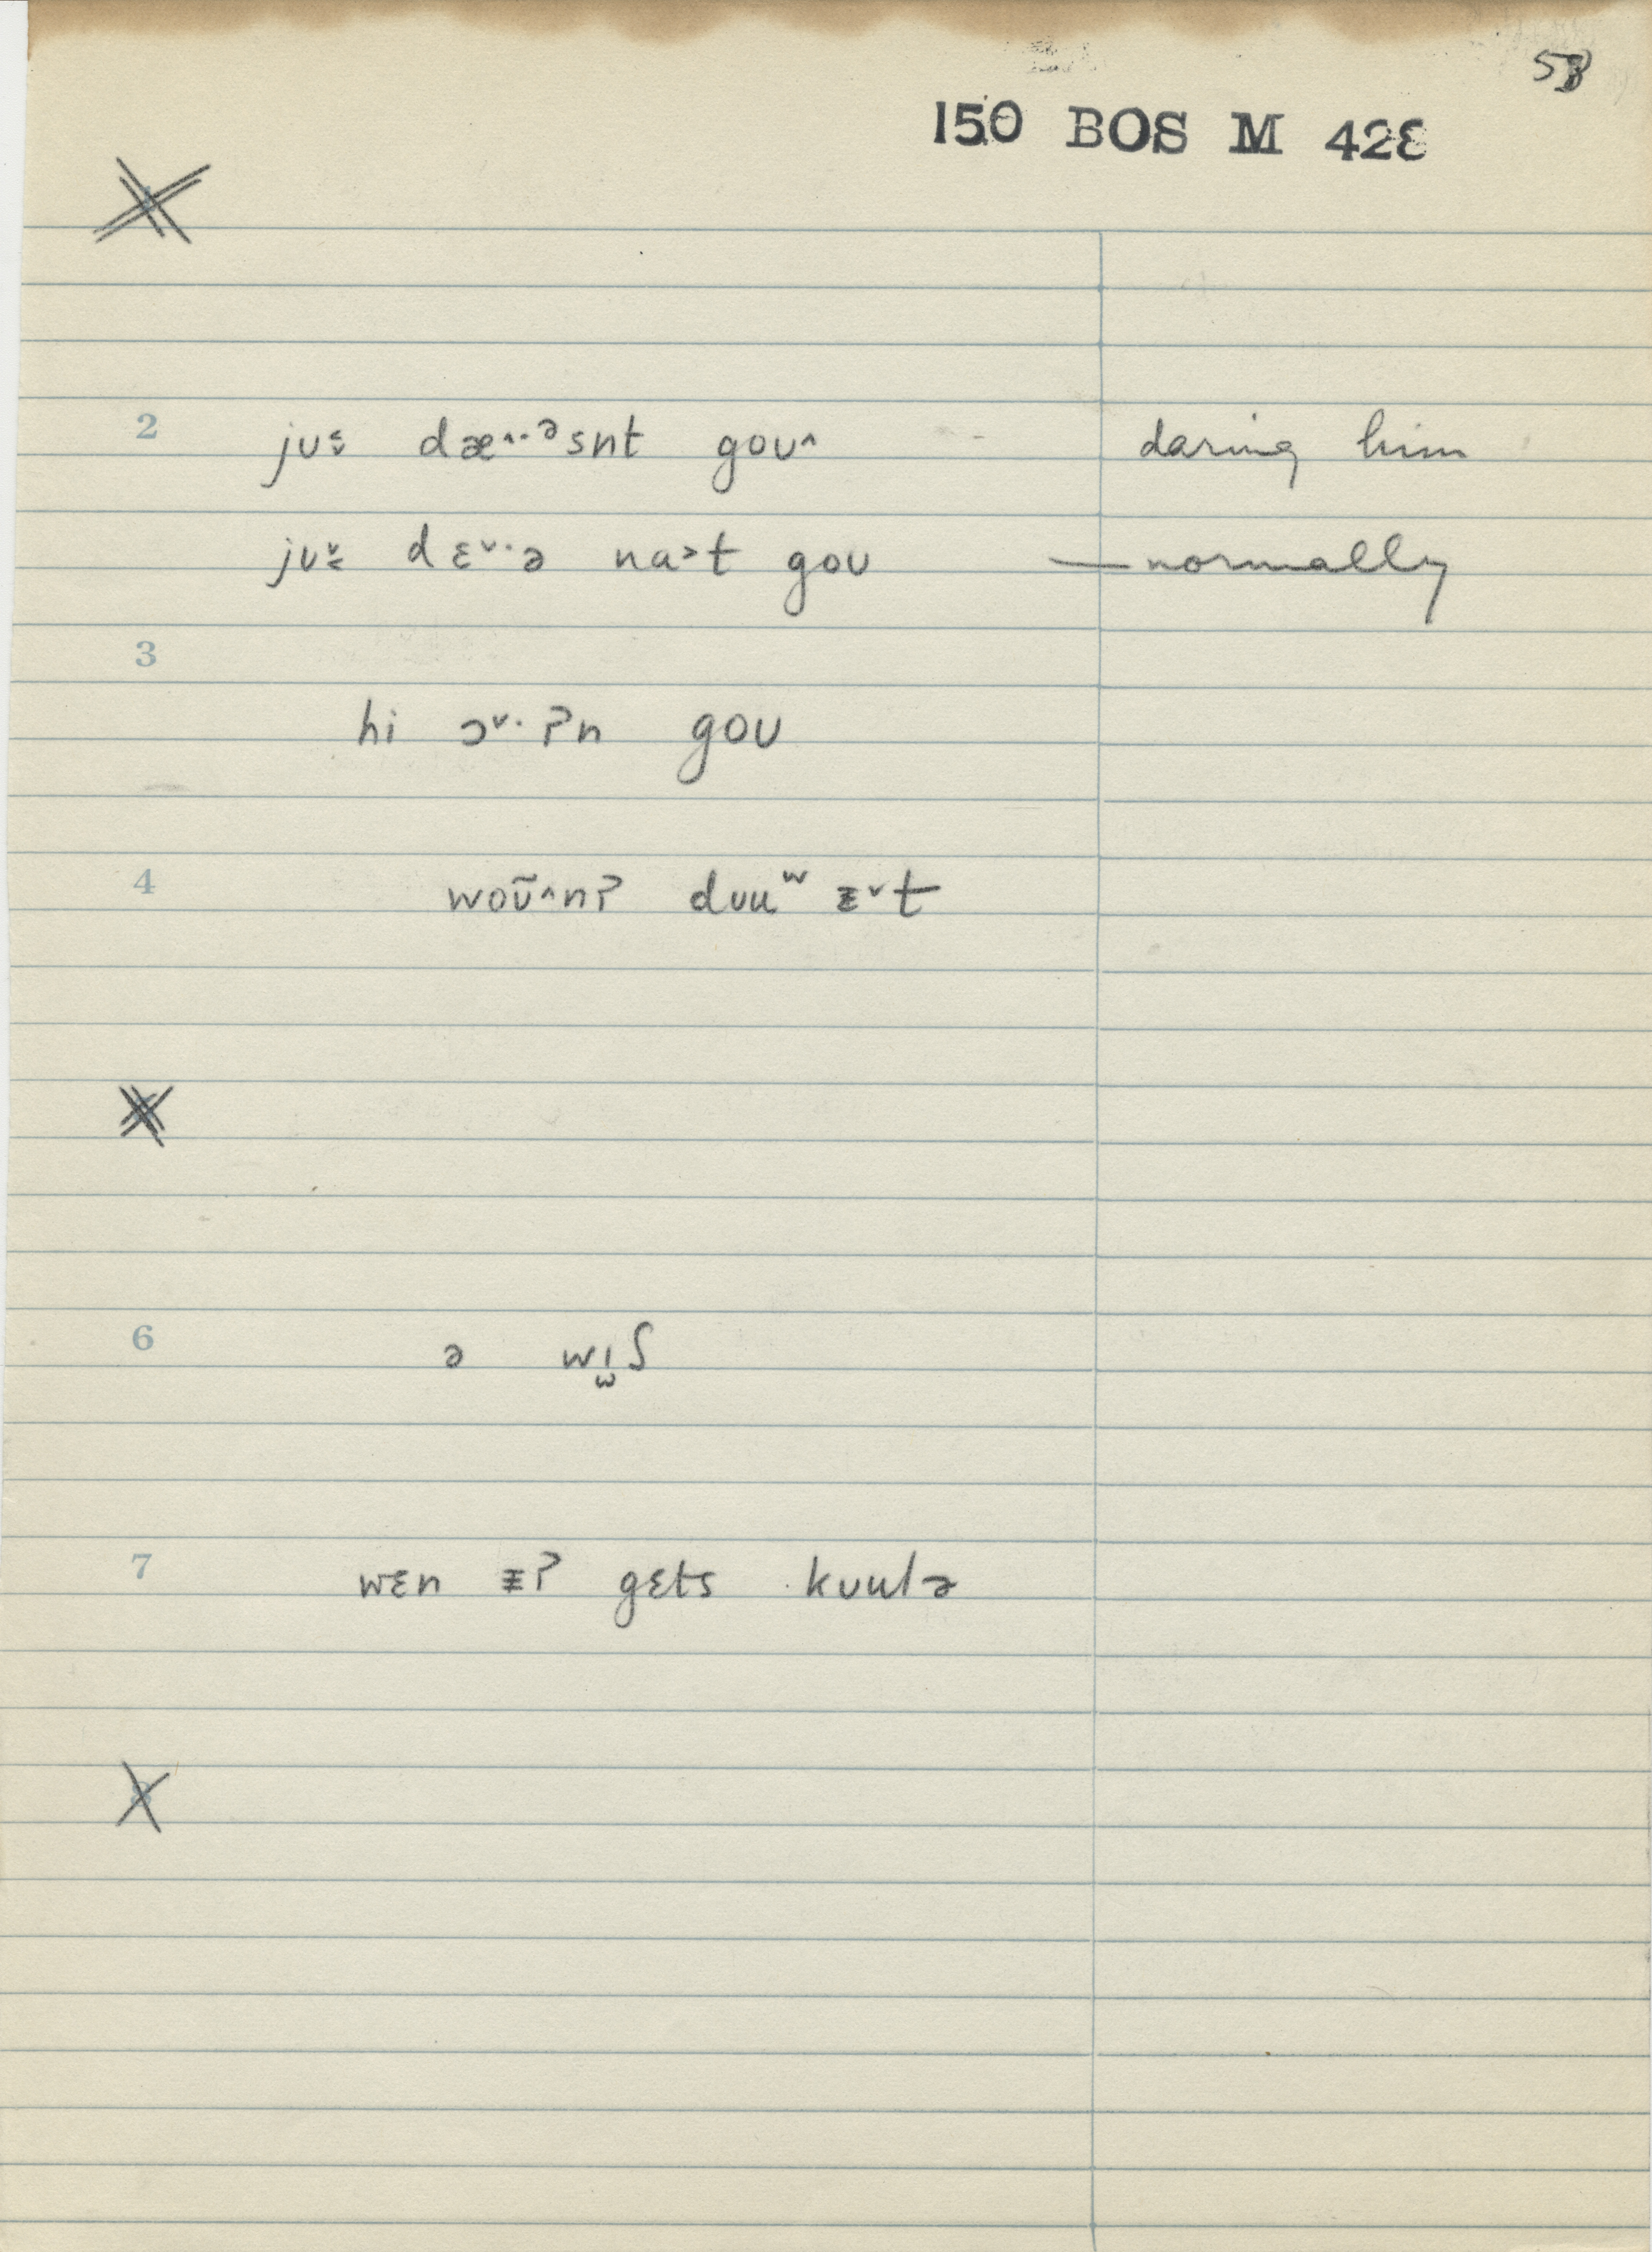 58
150 BOS M 428
2 jʊ᷂ dæ^··ᵊsnt goʊ^ daring him
jʊ dɛˇ·ə na>t goʊ — normally
3
hi ɔˇ·ʔn goʊ
4 woʊ̃^nʔ dʊuʷ ᵻˇt
6 ə wɪ̫ʃ
7 wɛn ᵻʔ gɛts kʊulə